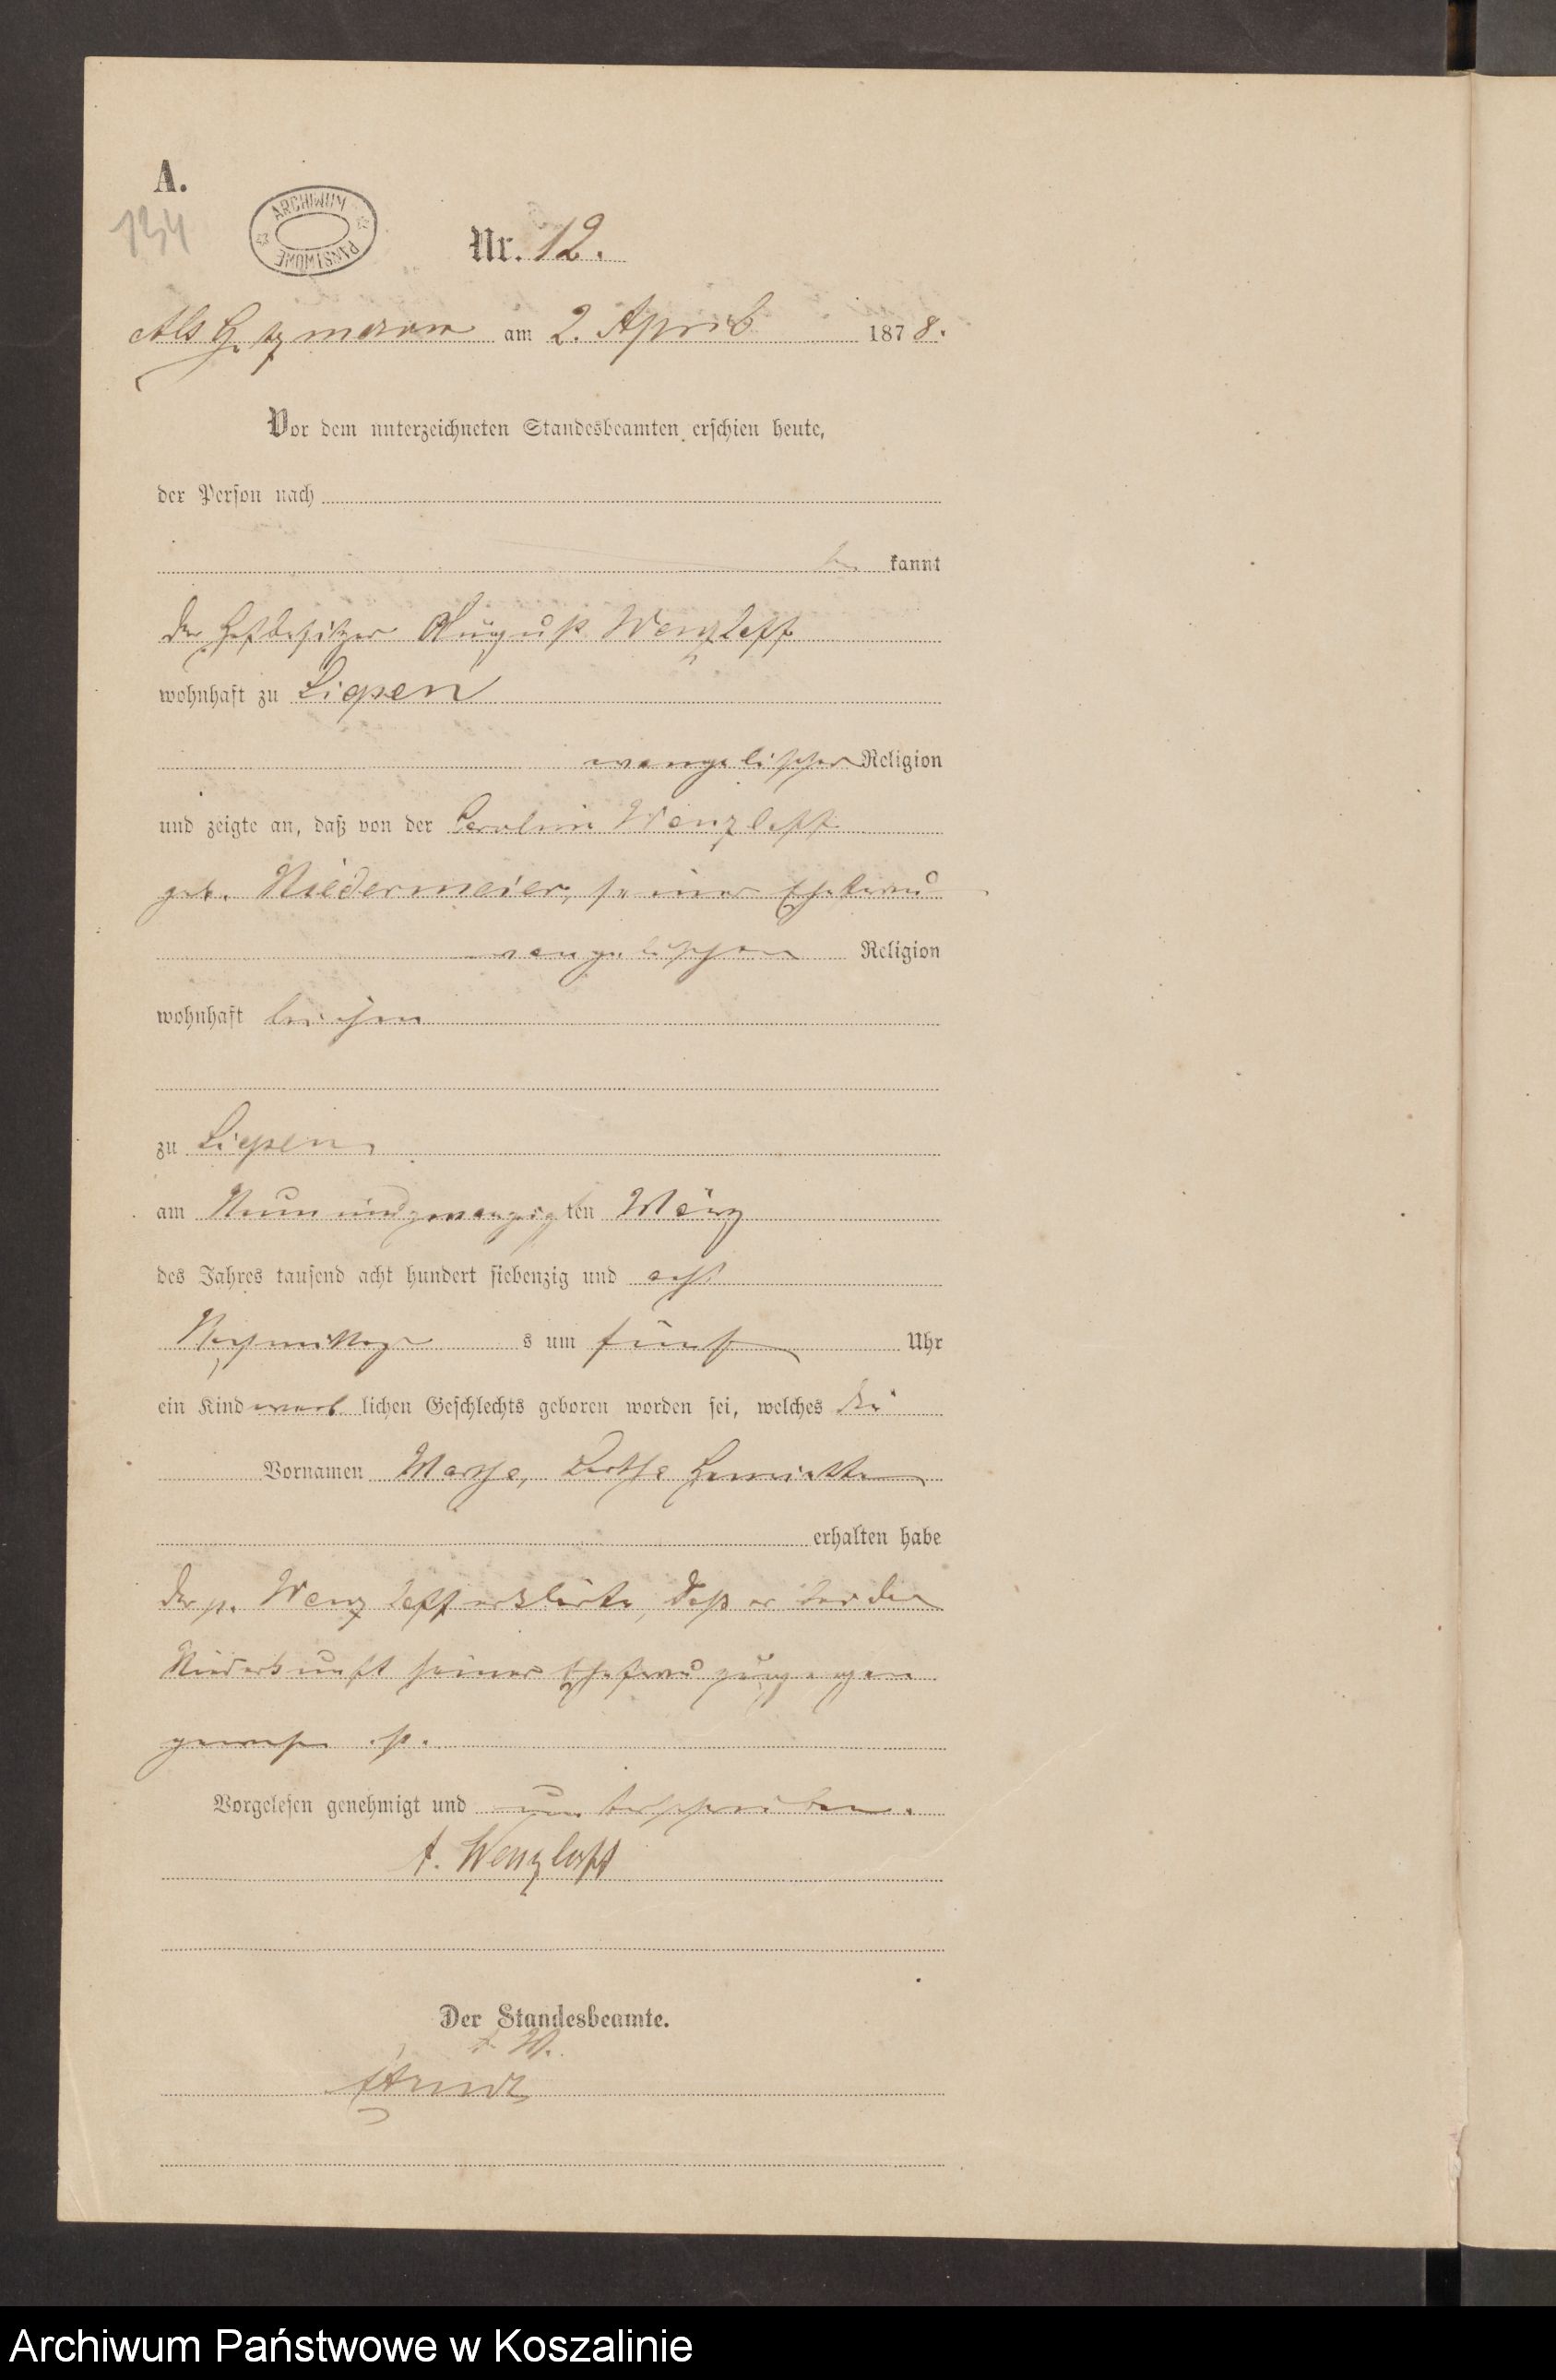 A.
134
ARCHIWUM PAŃSTWOWE
Nr. 12.
am 2. April 1878.
Vor dem unterzeichneten Standesbeamten erschien heute,
der Person nach
be kannt
der Hofbesitzer August Wenzlaff
wohnhaft zu Liepen
evangelischer Religion
und zeigte an, daß von der Caroline Wenzlaff
geb. Niedermeier, seiner Ehefrau
evangelischen Religion
wohnhaft bei ihm
zu Liepen
am Neun und zwanzigten März
des Jahres tausend acht hundert siebenzig und acht
Nachmittag s um fünf Uhr
ein Kind weib lichen Geschlechts geboren worden sei, welches die
Vornamen
erhalten habe
Der p. Wenzlaff erklärte, daß er bei der
Niederkunft seiner Ehefrau zugegen
gewesen ist.
Vorgelesen genehmigt und unterschrieben.
A. Wenzlaff
Der Standesbeamte.
Archiwum Państwowe w Koszalinie